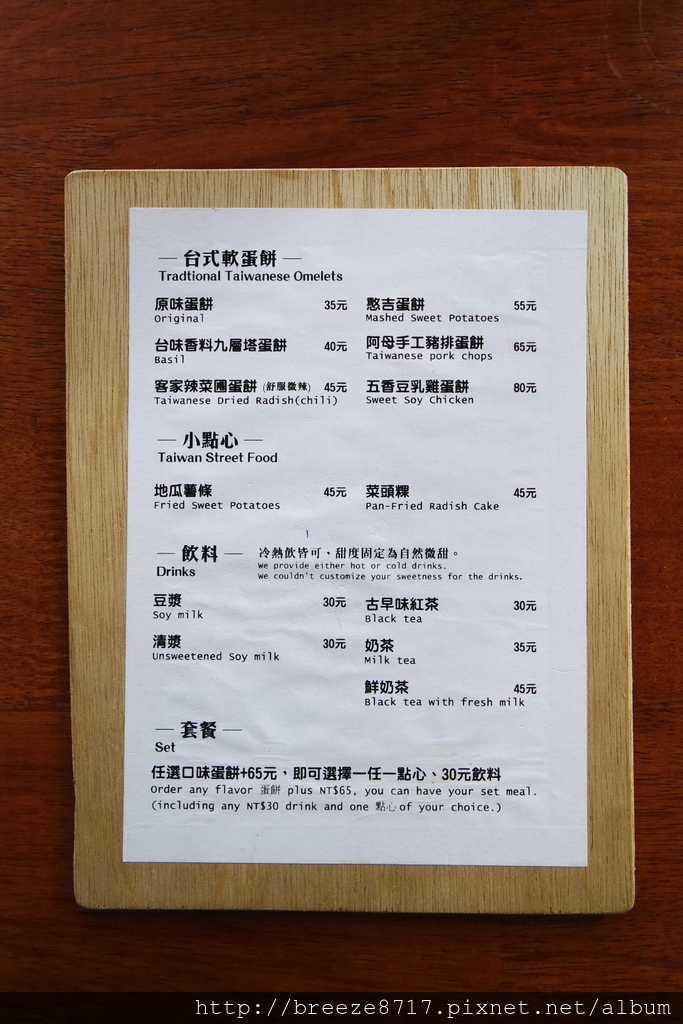 — 台式軟蛋餅 —
Tradtional Taiwanese Omelets
原味蛋餅 35元
Original
憨吉蛋餅 55元
Mashed Sweet Potatoes
台味香料九層塔蛋餅 40元
Basil
阿母手工豬排蛋餅 65元
Taiwanese pork chops
客家辣菜圃蛋餅 (舒服微辣) 45元
Taiwanese Dried Radish(chili)
五香豆乳雞蛋餅 80元
Sweet Soy Chicken
— 小點心 —
Taiwan Street Food
地瓜薯條 45元
Fried Sweet Potatoes
菜頭粿 45元
Pan-Fried Radish Cake
— 飲料 — 冷熱飲皆可，甜度固定為自然微甜。
Drinks
We provide either hot or cold drinks.
We couldn't customize your sweetness for the drinks.
豆漿 30元
Soy milk
古早味紅茶 30元
Black tea
清漿 30元
Unsweetened Soy milk
奶茶 35元
Milk tea
鮮奶茶 45元
Black tea with fresh milk
— 套餐 —
Set
任選口味蛋餅+65元，即可選擇一任一點心、30元飲料
Order any flavor 蛋餅 plus NT$65, you can have your set meal.
(including any NT$30 drink and one 點心 of your choice.)
http://breeze8717.pixnet.net/album